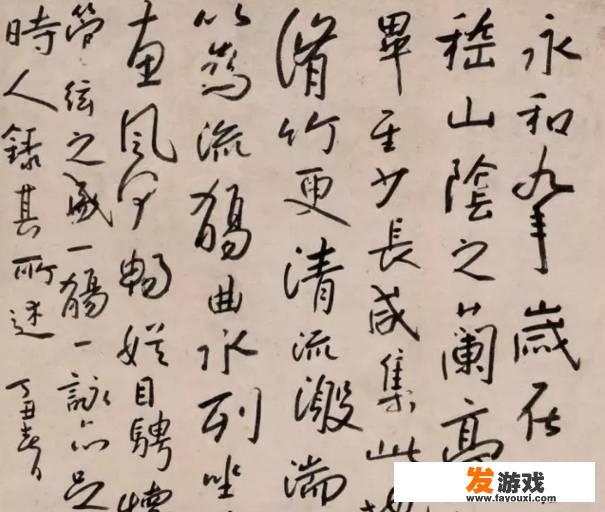 永和九年歲在
稽山陰之蘭亭
畢至少長咸集此地
脩竹更清流激湍
以為流觴曲水列坐
惠風和暢娛目騁懷
管弦之盛一觴一詠亦足
時人錄其所述 丁丑春日
发游戏
www.fayouxi.com